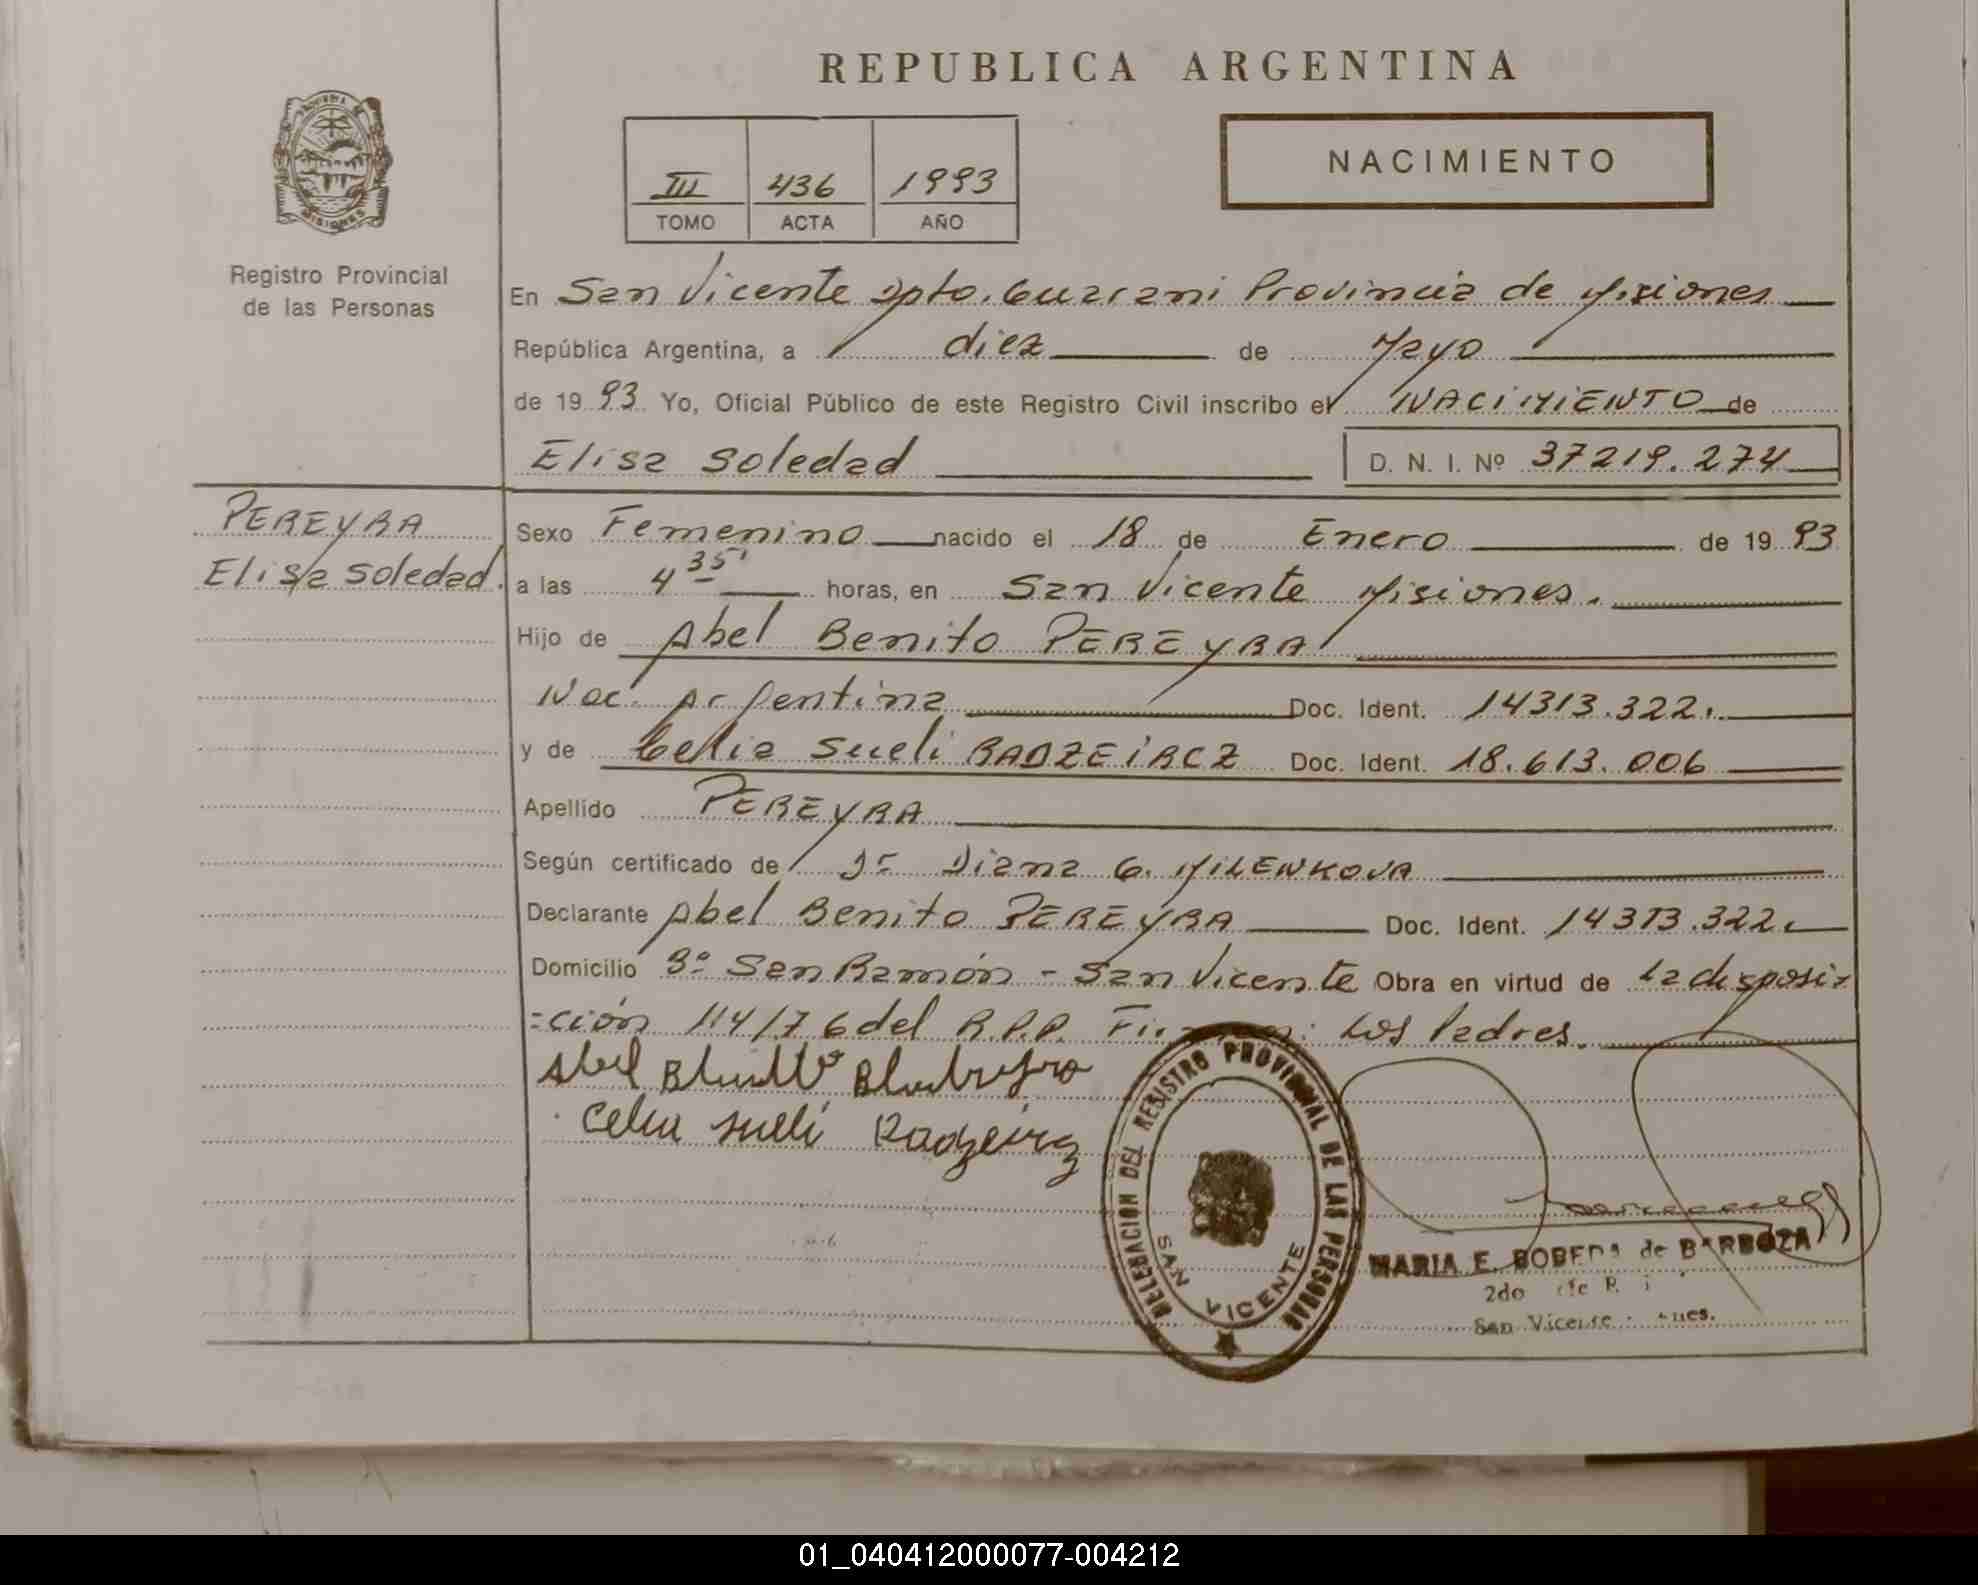 REPUBLICA ARGENTINA
PROVINCIA DE
MISIONES
Registro Provincial
de las Personas
III 436 1993
TOMO ACTA AÑO
NACIMIENTO
En San Vicente Dpto. Guarani Provincia de Misiones
República Argentina, a diez de Mayo
de 1993 Yo, Oficial Público de este Registro Civil inscribo el NACIMIENTO de
Elisa Soledad D. N. I. Nº 37219.274
PEREYRA
Elisa Soledad.
Sexo Femenino nacido el 18 de Enero de 1993
a las 4 35' horas, en San Vicente Misiones.
Hijo de Abel Benito PEREYRA
Nac. Argentina Doc. Ident. 14313.322.
y de Celia Sueli RADZEIRCZ Doc. Ident. 18.613.006
Apellido PEREYRA
Según certificado de Dr Diana G. MILENKOVA
Declarante Abel Benito PEREYRA Doc. Ident. 14313.322.
Domicilio Bº San Ramón - San Vicente Obra en virtud de La disposi=
=ción 114/76 del R.P.P. Los Padres.
Abel
Celia Sueli Radzeirz
DELEGACION DEL REGISTRO PROVINCIAL DE LAS PERSONAS
SAN VICENTE
MARIA E. de BARBOZA
2do
San Vicente
01_040412000077-004212